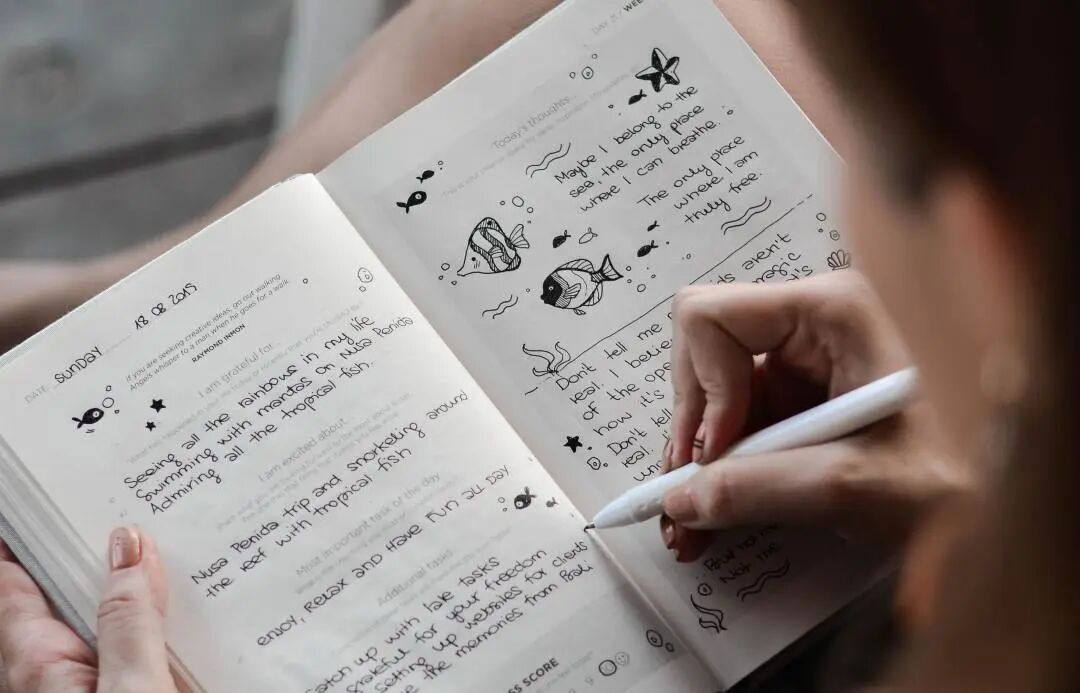 DATE SUNDAY 18 08 2019
If you are seeking creative ideas, go out walking.
Angels whisper to a man when he goes for a walk.
RAYMOND INMON
I am grateful for...
Seeing all the rainbows in my life
Swimming with mantas on Nusa Penida
Admiring all the tropical fish.
I am excited about...
Nusa Penida trip and snorkeling around
the reef with tropical fish
Most important task of the day
enjoy, relax and have fun all day
Additional tasks
catch up with late tasks
grateful for your freedom
setting up websites for clients
the memories from Bali
SCORE
DAY 21 / WEE
Today's thoughts...
Maybe I belong to the
sea, the only place
where I can breathe.
The only place
where I am
truly free.
aren't
magic
Don't tell me
real. I believe
of the
how it's
Don't tell
real.
Not me.